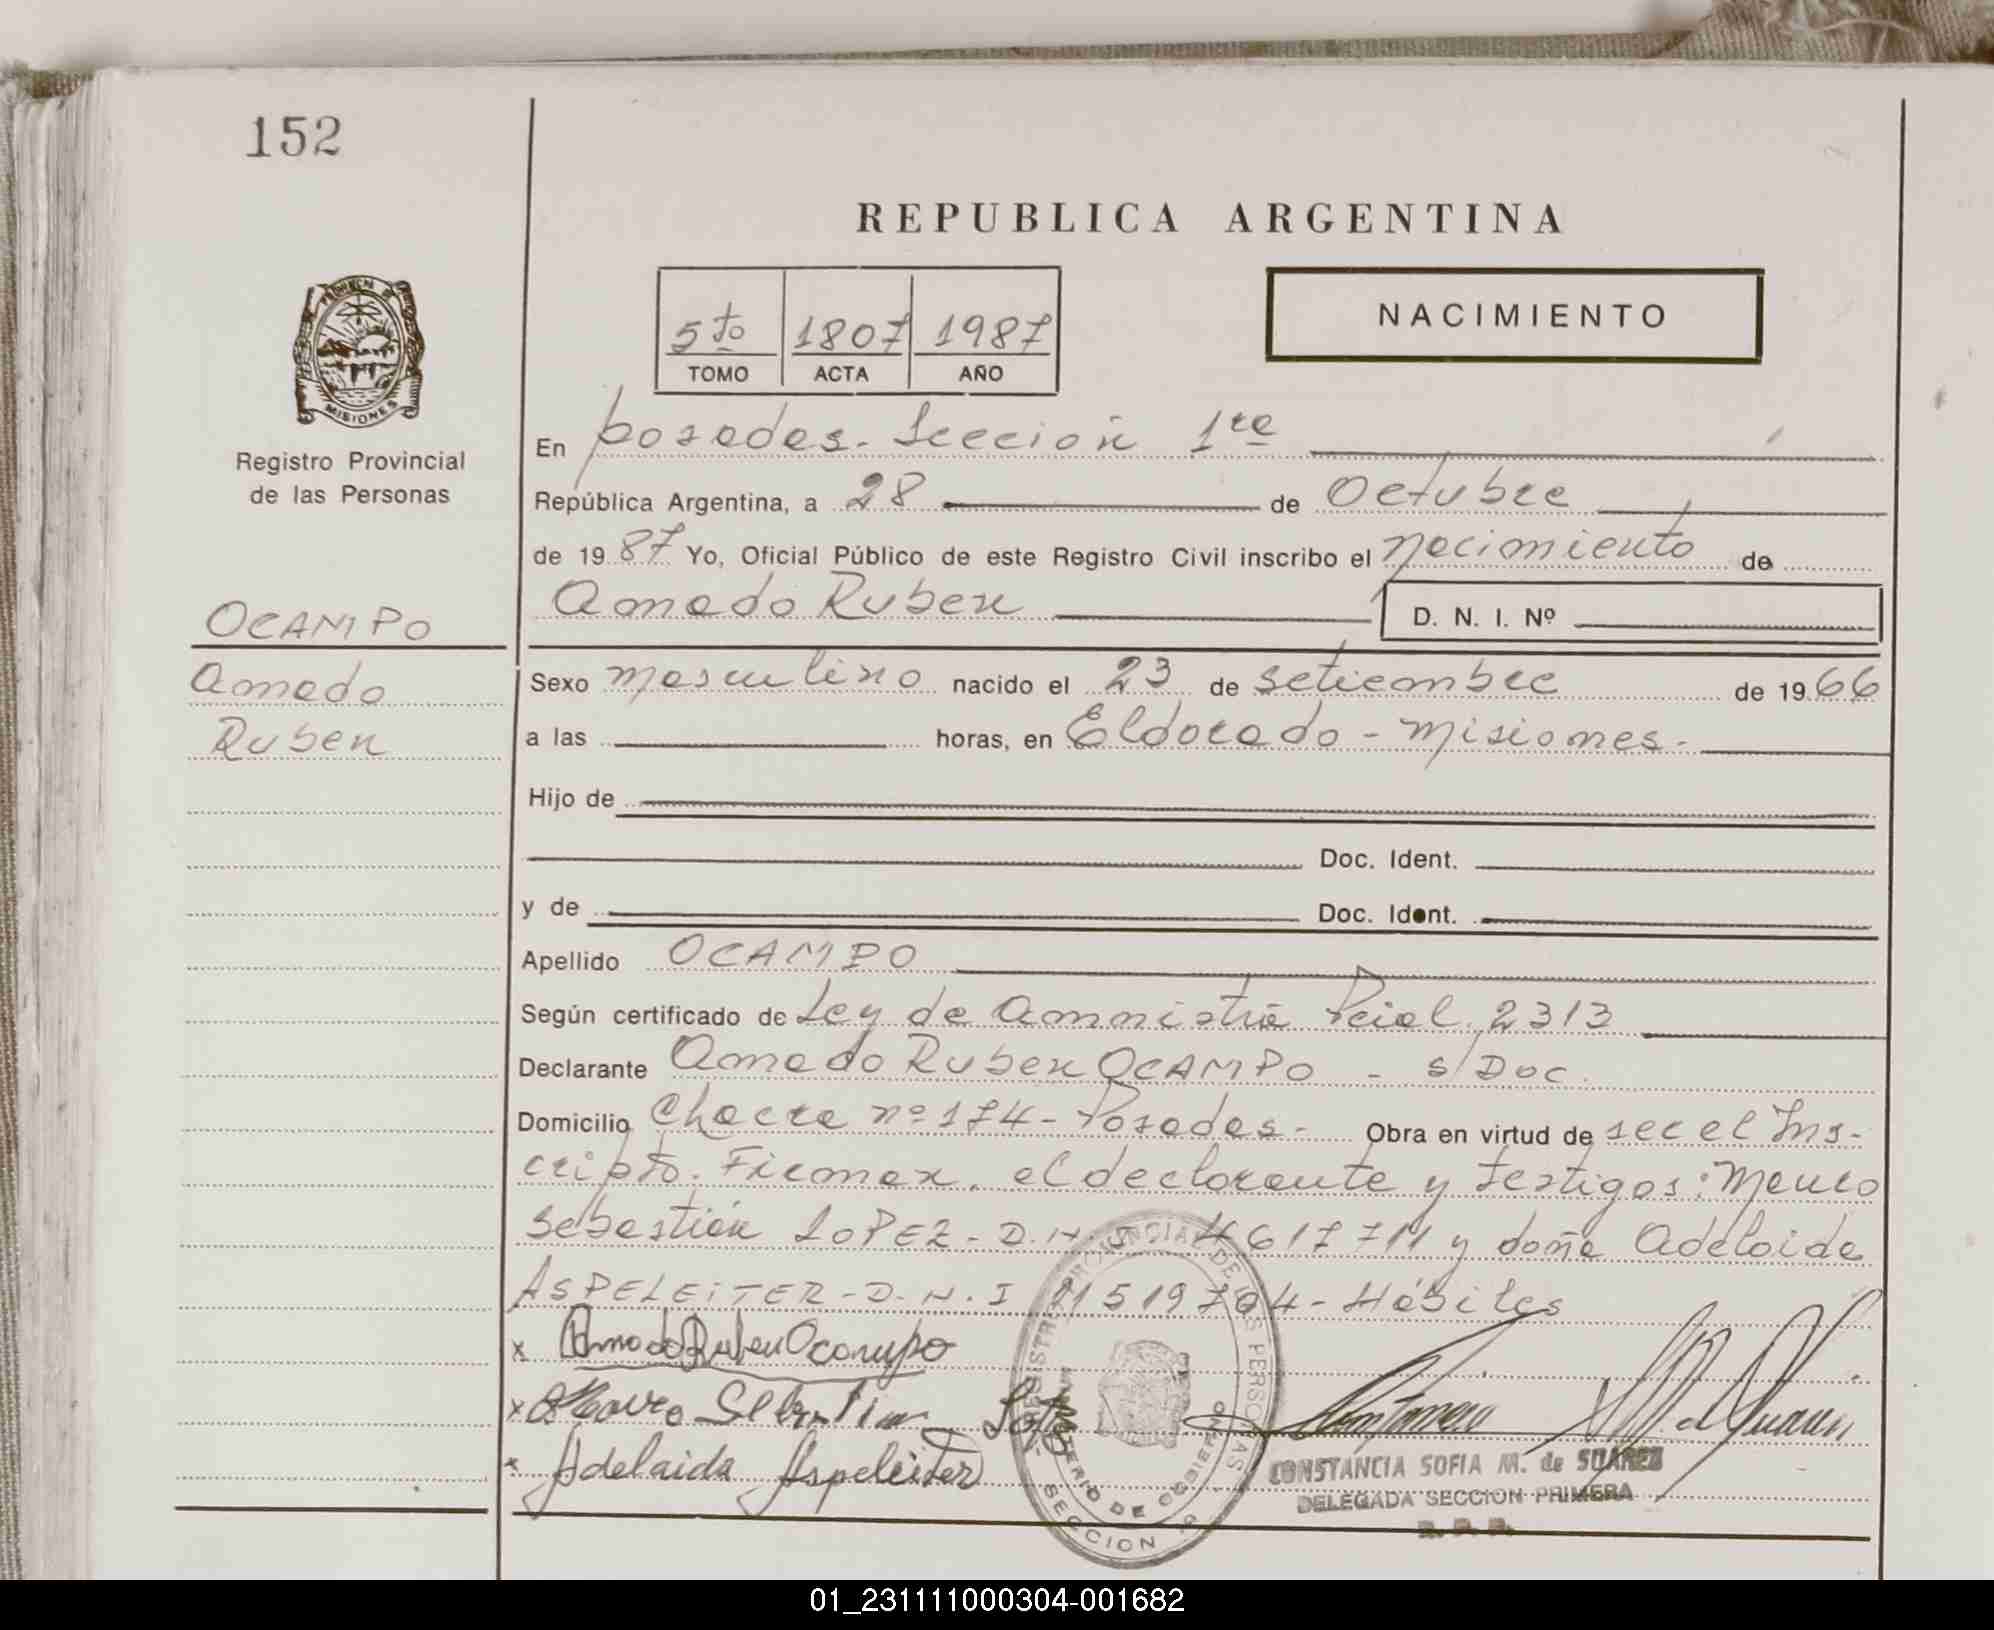 152
REPUBLICA ARGENTINA
5to 1807 1987
TOMO ACTA AÑO
NACIMIENTO
MISIONES
Registro Provincial
de las Personas
En posadas - Seccion 1ra
República Argentina, a 28 de Octubre
de 19 87 Yo, Oficial Público de este Registro Civil inscribo el nacimiento de
Amado Ruben D. N. I. Nº
OCAMPO
Amado
Ruben
Sexo masculino nacido el 23 de setiembre de 19 66
a las horas, en Eldorado - misiones -
Hijo de
Doc. Ident.
y de Doc. Ident.
Apellido OCAMPO
Según certificado de Ley de Amnistia Pcial. 2313
Declarante Amado Ruben OCAMPO - s/Doc.
Domicilio Chacra nº 174 - Posadas - Obra en virtud de ser el Ins-
cripto. Firman, el declarante y testigos: Mauro
Sebastián LOPEZ - D.N. 4617711 y doña Adelaida
ASPELEITER - D.N.I 11519704 - Hábiles
x Amado Ruben Ocampo
x Mauro Sebastian
x Adelaida Aspeleiter
REGISTRO PROVINCIAL DE LAS PERSONAS
MINISTERIO DE GOBIERNO
SECCION 1ª
CONSTANCIA SOFIA M. de SUAREZ
DELEGADA SECCION PRIMERA
R. P. P.
01_231111000304-001682